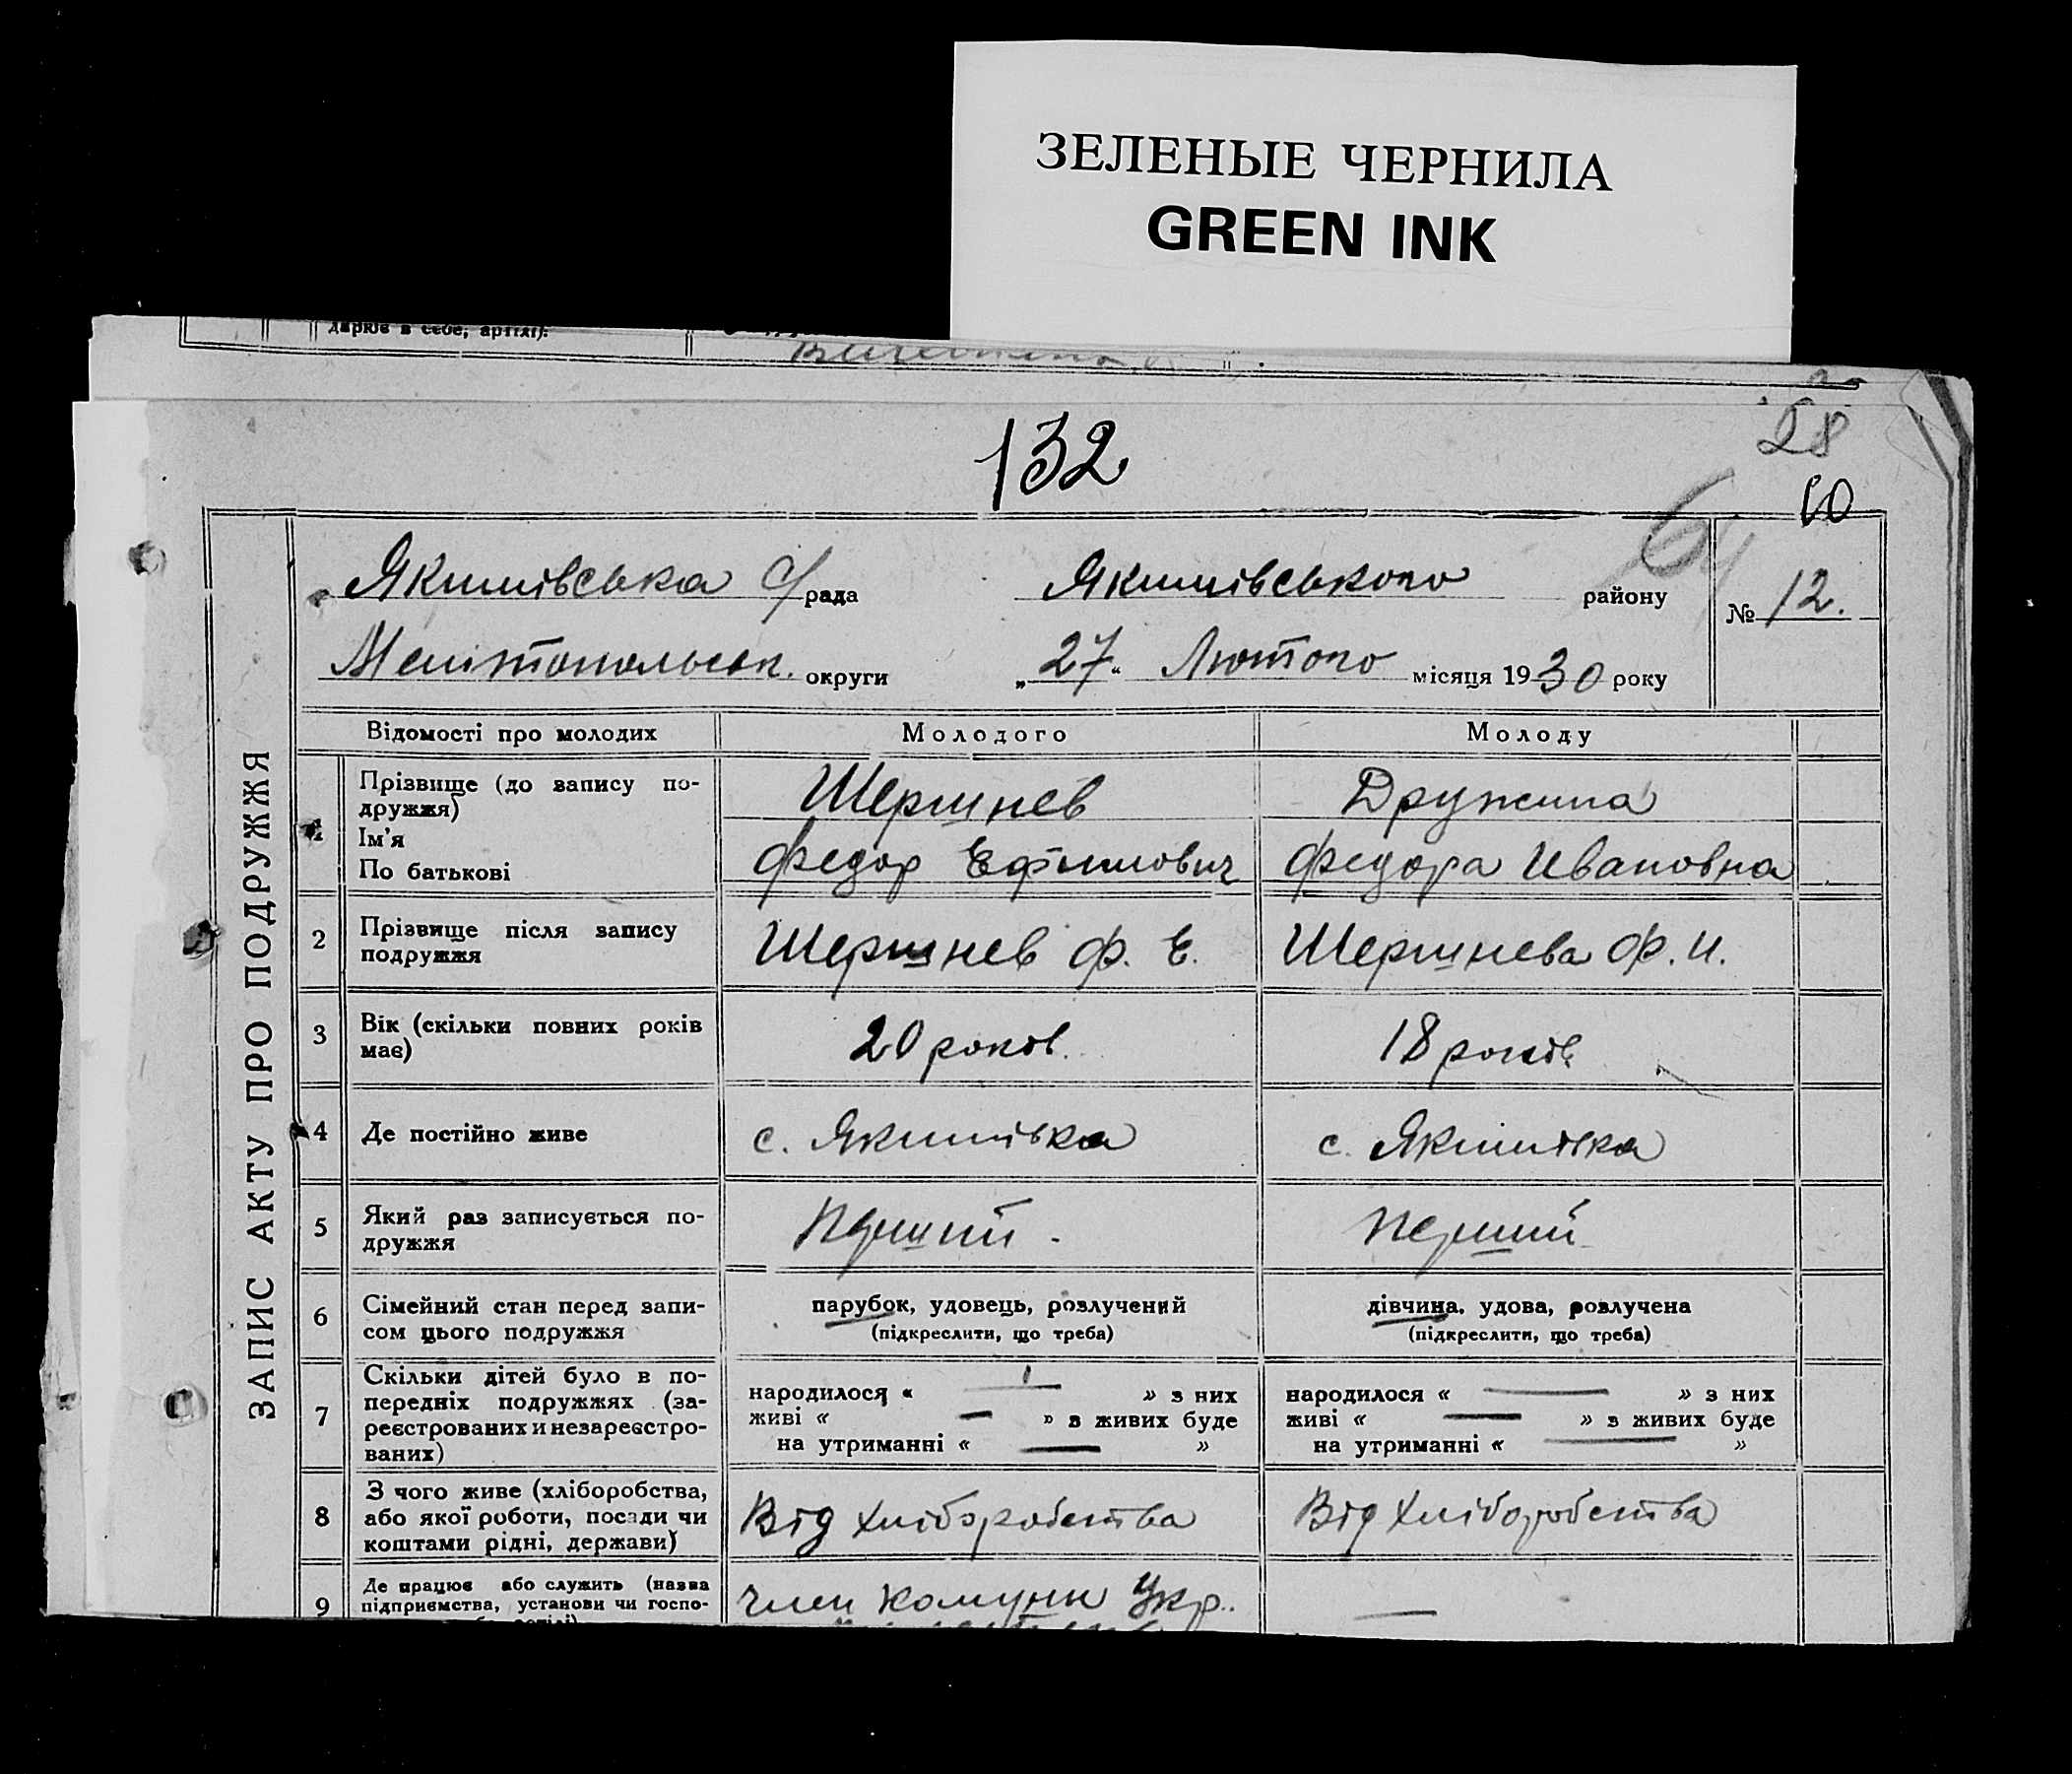 ЗЕЛЕНЫЕ ЧЕРНИЛА
GREEN INK
дарює в себе, артілі):
132
28
60
64
Якимівська с/рада Якимівського району № 12.
Мелітопольськ. округи „27“ Лютого місяця 1930 року
ЗАПИС АКТУ ПРО ПОДРУЖЖЯ
Відомості про молодих Молодого Молоду
1 Прізвище (до запису по-
дружжя) Шершнев Дружина
Ім'я
По батькові Федор Ефимович Федора Ивановна
2 Прізвище після запису
подружжя Шершнев Ф. Е. Шершнева Ф. И.
3 Вік (скільки повних років
має) 20 років. 18 років.
4 Де постійно живе с. Якимівка с. Якимівка
5 Який раз записується по-
дружжя Перший. Перший
6 Сімейний стан перед запи-
сом цього подружжя
парубок, удовець, розлучений
(підкреслити, що треба)
дівчина, удова, розлучена
(підкреслити, що треба)
7 Скільки дітей було в по-
передніх подружжях (за-
реєстрованих и незареєстро-
ваних)
народилося « — » з них
живі « — » з живих буде
на утриманні « — »
народилося « — » з них
живі « — » з живих буде
на утриманні « — »
8 З чого живе (хліборобства,
або якої роботи, посади чи
коштами рідні, держави)
Від хліборобства Від хліборобства
9 Де працює або служить (назва
підприємства, установи чи госпо-
член комуни Укр. —